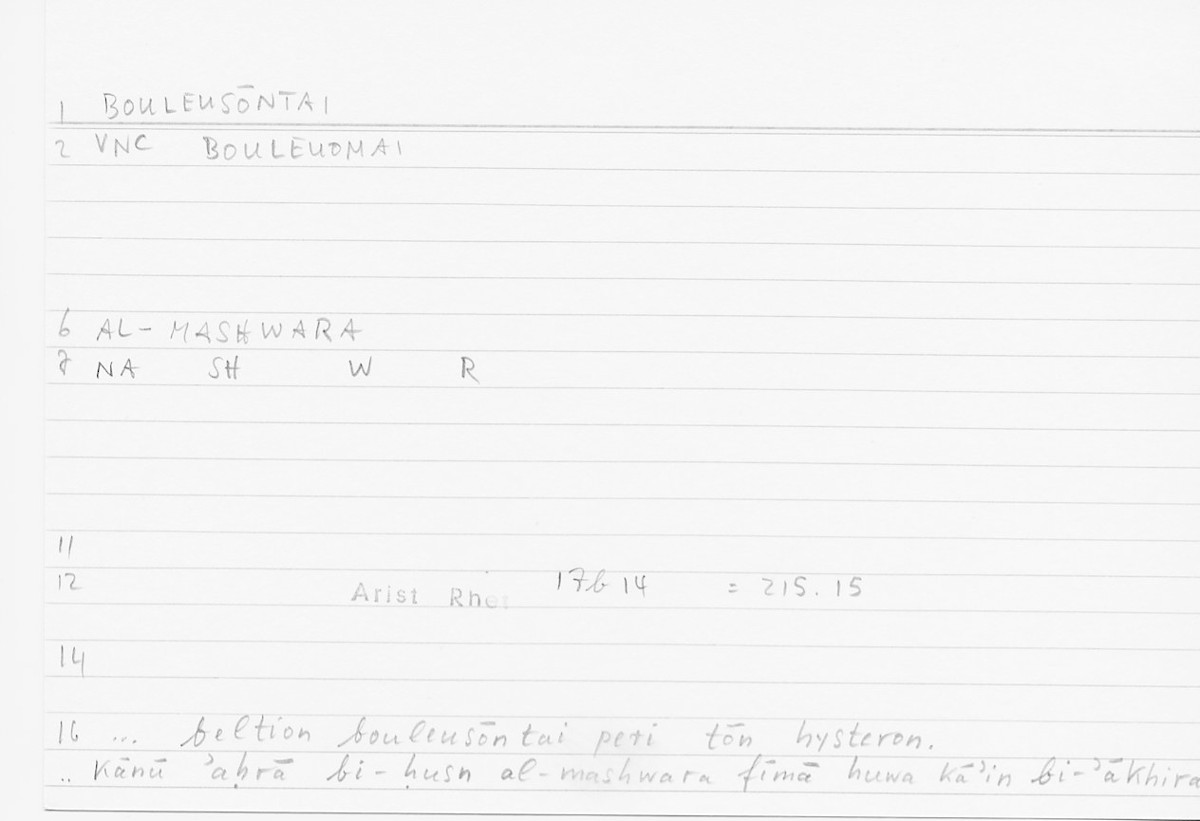 1 BOULEUSŌNTAI
2 VNC BOULEUOMAI
6 AL-MASHWARA
7 NA SH W R
11
12 Arist Rhet 17b14 = 215.15
14
16 ... beltion bouleusōntai peri tōn hysteron.
.. kānū ʾaḥrā bi-ḥusn al-mashwara fīmā huwa kāʾin bi-ʾākhira